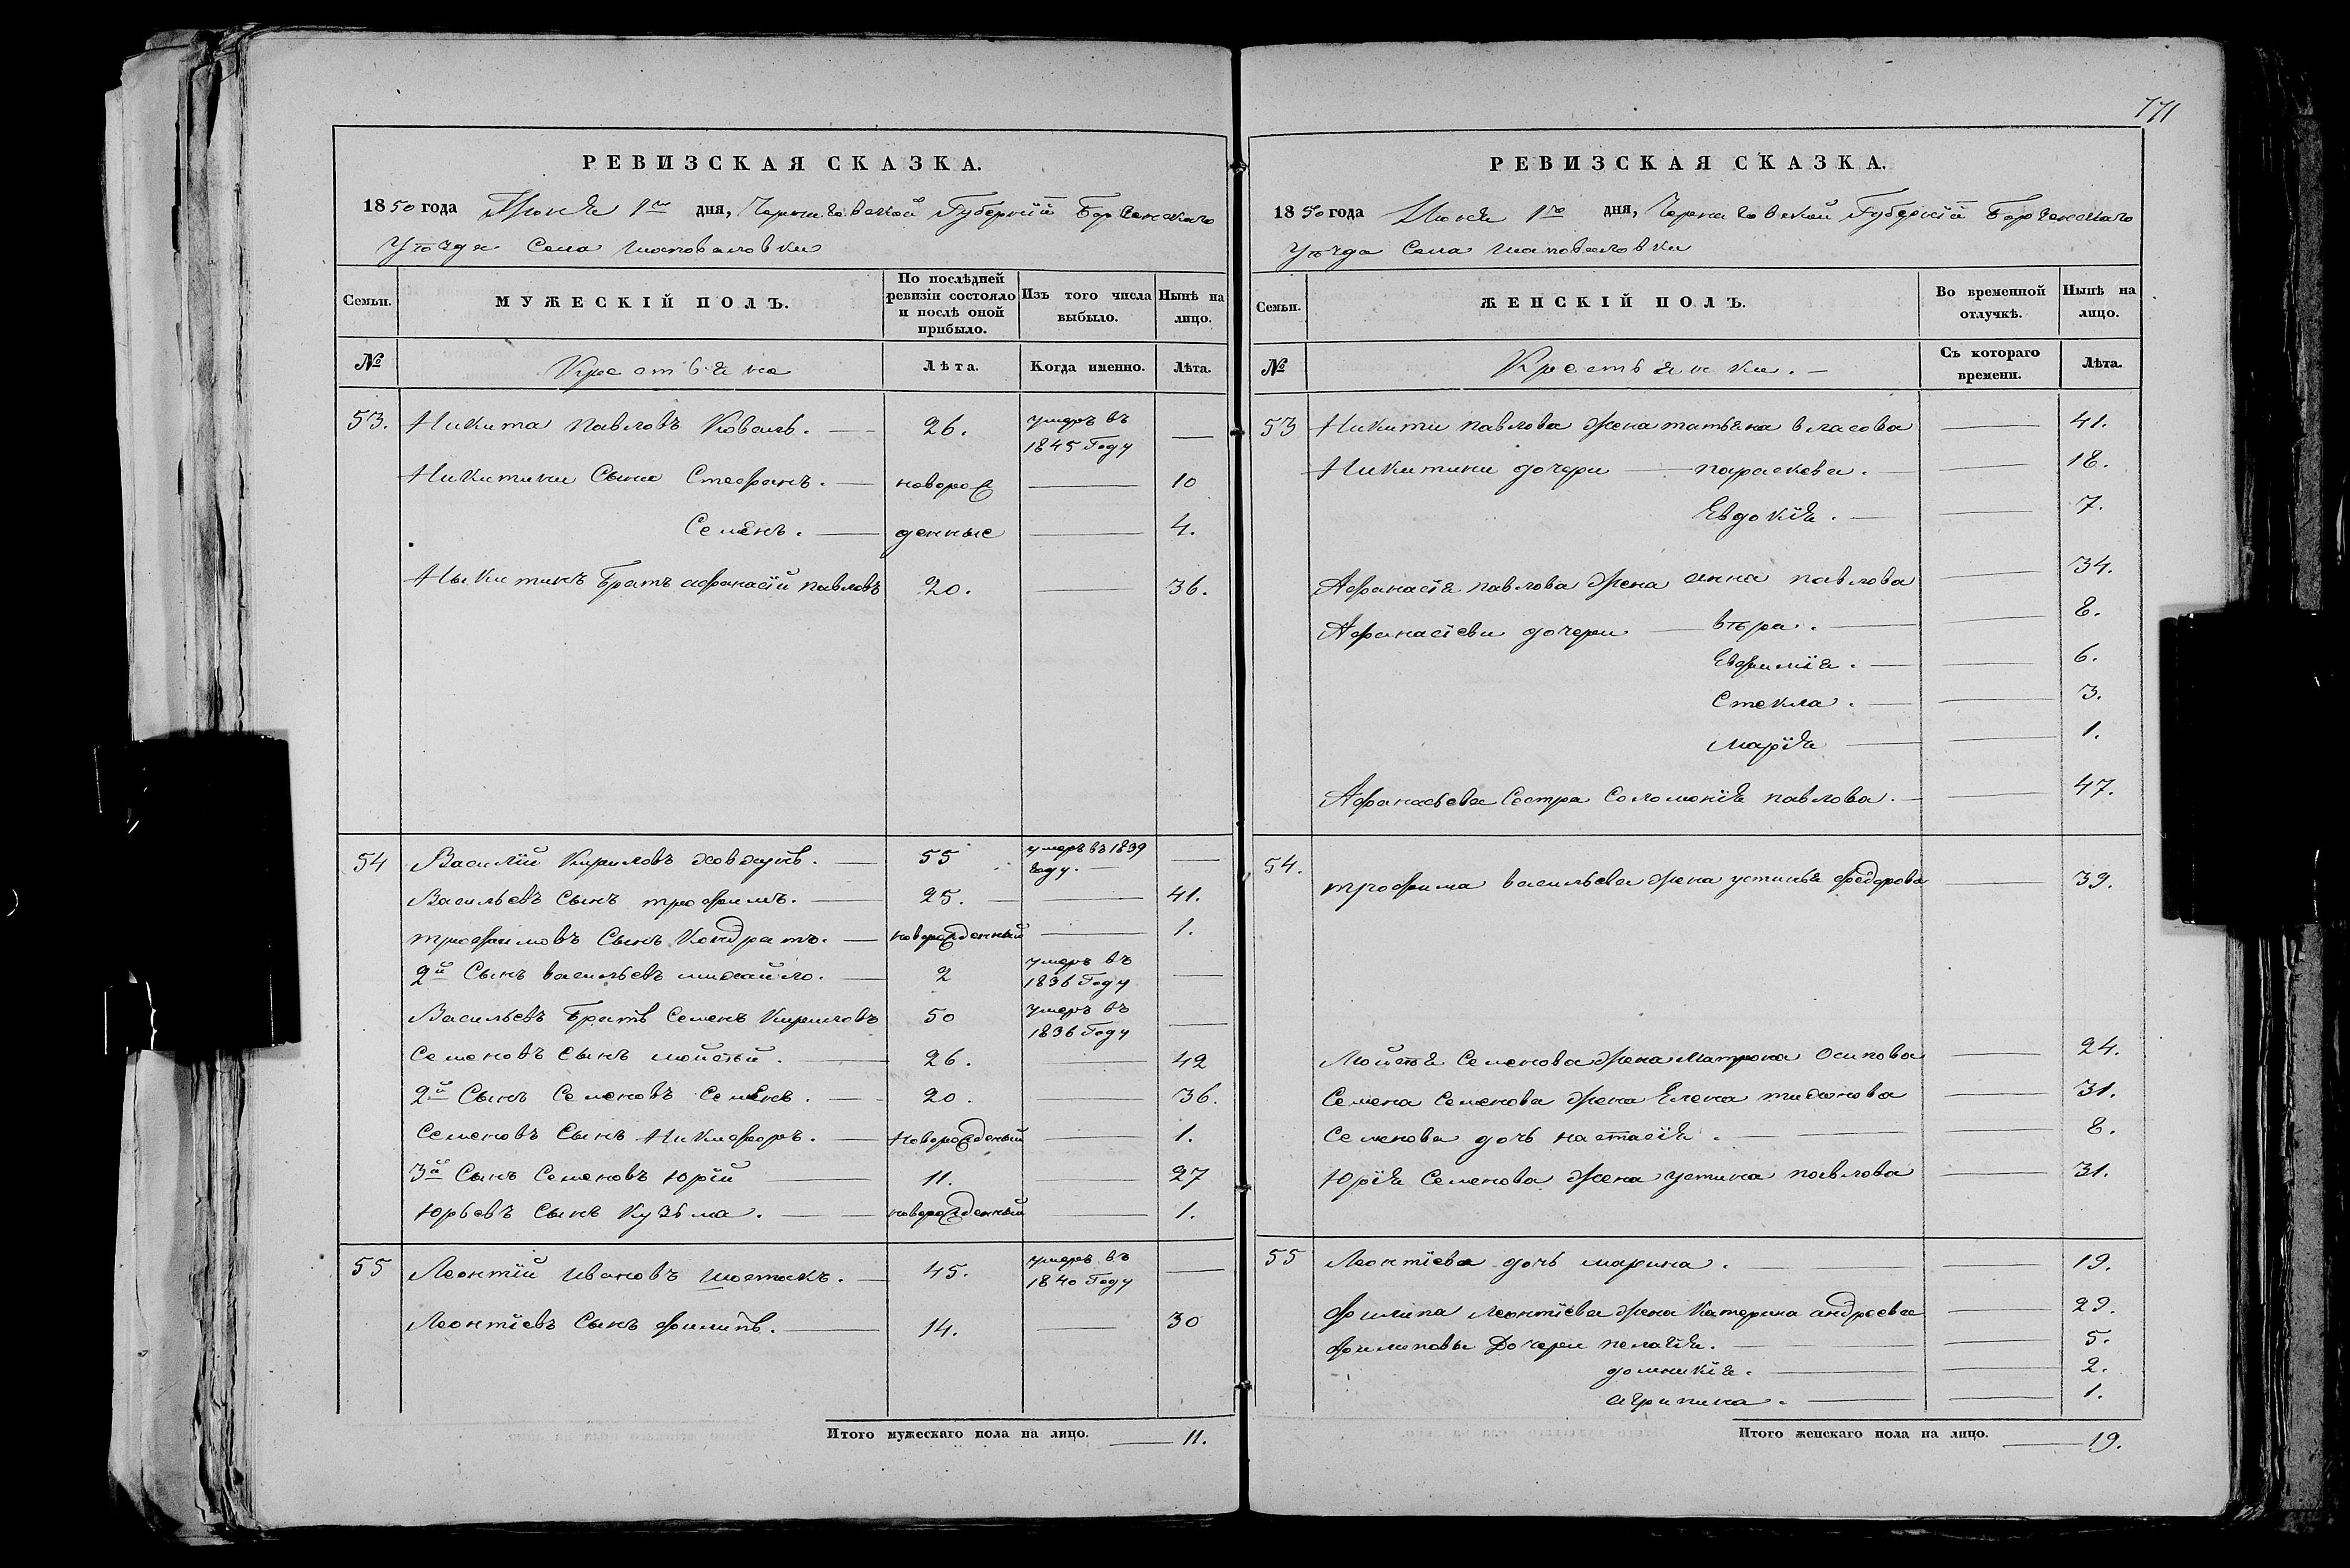 771
РЕВИЗСКАЯ СКАЗКА.
1850 года Июня 1го дня, Черниговской Губерніи Борзенскаго
Уѣзда Села Шаповаловки
Семьи. МУЖЕСКІЙ ПОЛЪ. По послѣдней ревизіи состояло и послѣ оной прибыло. Изъ того числа выбыло. Нынѣ на лицо.
№ Крестьяне Лѣта. Когда именно. Лѣта.
53. Никита Павловъ Коваль. 26. умеръ въ 1845 Году —
Никитины Сыны Стефанъ. новорож 10
Семенъ. денные 4.
Никитинъ Братъ Афанасій Павловъ 20. 36.
54 Василій Кириловъ Ховхунъ. 55 умеръ въ 1839 году. —
Васильевъ Сынъ трофимъ. 25. 41.
трофимовъ Сынъ Кондратъ. новорожденный 1.
2й Сынъ васильевъ михайло. 2 умеръ въ 1836 Году —
Васильевъ Братъ Семенъ Кириловъ 50 умеръ въ 1836 Году —
Семеновъ Сынъ мойсѣй. 26. 42
2й Сынъ Семеновъ Семенъ. 20. 36.
Семеновъ Сынъ Никифоръ. Новорожденый 1.
3й Сынъ Семеновъ Юрій 11. 27
Юрьевъ Сынъ Кузьма. новорожденный 1.
55 Леонтій Ивановъ шостакъ. 45. умеръ въ 1840 Году —
Леонтіевъ Сынъ филипъ. 14. 30
Итого мужескаго пола на лицо. 11.
РЕВИЗСКАЯ СКАЗКА.
1850 года Июня 1го дня, Черниговской Губерніи Борзенскаго
Уѣзда Села Шаповаловки
Семьи. ЖЕНСКІЙ ПОЛЪ. Во временной отлучкѣ. Нынѣ на лицо.
№ Крестьянки. Съ котораго времени. Лѣта.
53 Никити павлова жена татьяна власова 41.
Никитини дочери параскева. 18.
Евдокія. 7.
Афанасія павлова жена анна павлова 34.
Афанасіеви дочери вѣра. 8.
Евфимія. 6.
Стекла. 3.
Марія 1.
Афанасьева Сестра Соломонія павлова. 47.
54. трофима васильева жена устинья федорова 39.
Мойсѣя Семенова жена Матрона Осипова 24.
Семена Семенова жена Елена тихонова 31.
Семенова дочь настасія. 8.
Юрія Семенова жена устина павлова 31.
55 Леонтіева дочь марина. 19.
Филипа Леонтіева жена Катерина андреева 29.
Филиповы Дочери пелагія. 5.
домникія. 2.
агрипина. 1.
Итого женскаго пола на лицо. 19.